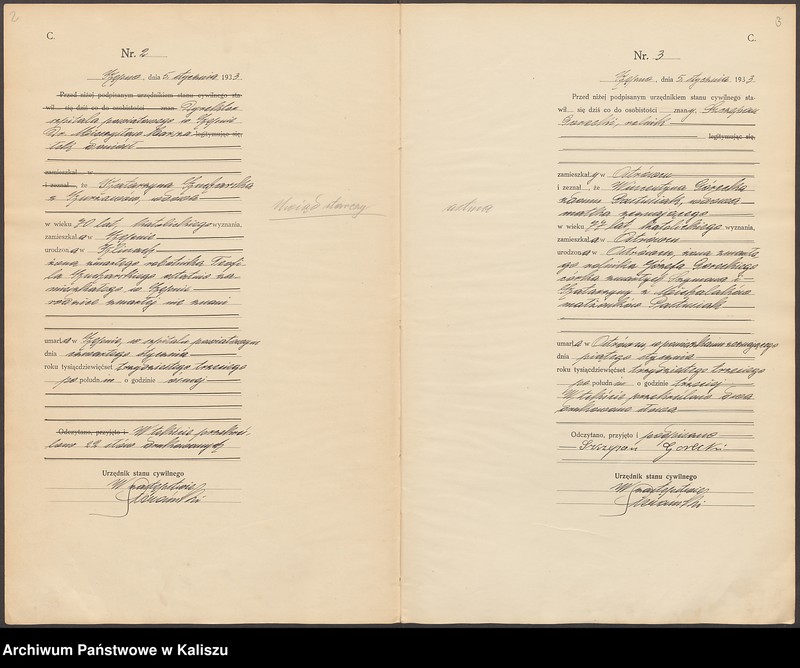 2
C.
Nr. 2
Kępno, dnia 5. stycznia 1933
Przed niżej podpisanym urzędnikiem stanu cywilnego sta-
wił się dziś co do osobistości man Dyrektor
szpitala powiatowego w Kępnie
Dr. legitymując się,
zamieszkał w
i zeznał, że Katarzyna
z wdowa
w wieku 70 lat, katolickiego wyznania,
zamieszkała w Kępnie
urodzona w
żona zmarłego robotnika Teofi-
la ostatnio za-
mieszkałego w Kępnie
rodzice zmarłej nie znani
umarła w Kępnie, w szpitalu powiatowym
dnia czwartego stycznia
roku tysiącdziewięćset trzydziestego trzeciego
po połudn.iu o godzinie ósmej
Odczytano, przyjęto i W tekście przekreś-
lono 22 słów drukowanych
Urzędnik stanu cywilnego
W zastępstwie
Uwiąd starczy
3
C.
Nr. 3
Kępno, dnia 5. stycznia 1933
Przed niżej podpisanym urzędnikiem stanu cywilnego sta-
wił się dziś co do osobistości znany, Szczepan
Gorecki, rolnik
legitymując się,
zamieszkały w Ostrówcu
i zeznał, że Wincentyna Górecka
wdowa
matka zeznającego
w wieku 77 lat, katolickiego wyznania,
zamieszkała w Ostrówcu
urodzona w Ostrówcu, żona zmarłe-
go rolnika Józefa Goreckiego
córka zmarłych Szymona i
Katarzyny z Michalaków
małżonków
umarła w Ostrówcu, w pomieszkaniu zeznającego
dnia piątego stycznia
roku tysiącdziewięćset trzydziestego trzeciego
po połudn.iu o godzinie trzeciej
W tekście przekreślono dwa
drukowane słowa
Odczytano, przyjęto i podpisano
Szczepan Gorecki
Urzędnik stanu cywilnego
W zastępstwie
Archiwum Państwowe w Kaliszu